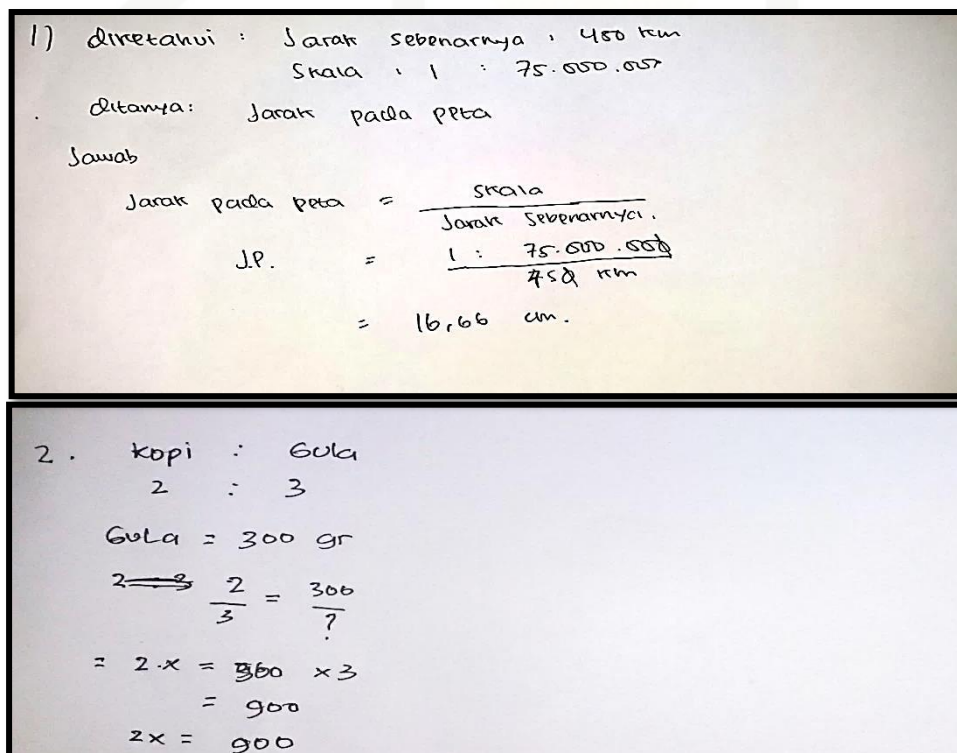 1) diketahui : Jarak sebenarnya : 450 km
Skala : 1 : 75.000.000
ditanya: Jarak pada peta
Jawab
Jarak pada peta = Skala
Jarak sebenarnya.
J.P. = 1 : 75.000.000
450 km
= 16,66 cm.
2. Kopi : Gula
2 : 3
Gula = 300 gr
2/3 = 300/?
= 2.x = 300 x 3
= 900
2x = 900